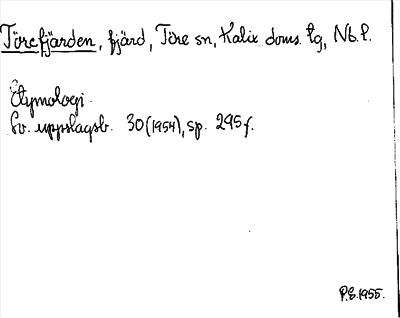 Törefjärden, fjärd, Töre sn, Kalix doms. tg, Nb. l.
Etymologi.
Sv. uppslagsb. 30 (1954), sp. 295 f.
P.E. 1955.